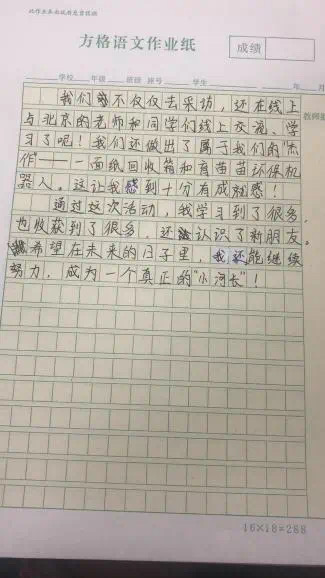 方格语文作业纸
成绩
学校 年级 班级 座号 学生 年 月
我们不仅仅去采访，还在线上
与北京的老师和同学们线上交流、学
习了呢！我们还做出了属于我们的"杰
作"——一面纸回收箱和育苗苗环保机
器人。这让我感到十分有成就感！
通过这次活动，我学习到了很多，
也收获到了很多，还认识了新朋友。
希望在未来的日子里，我还能继续
努力，成为一个真正的"小河长"！
16×18=288